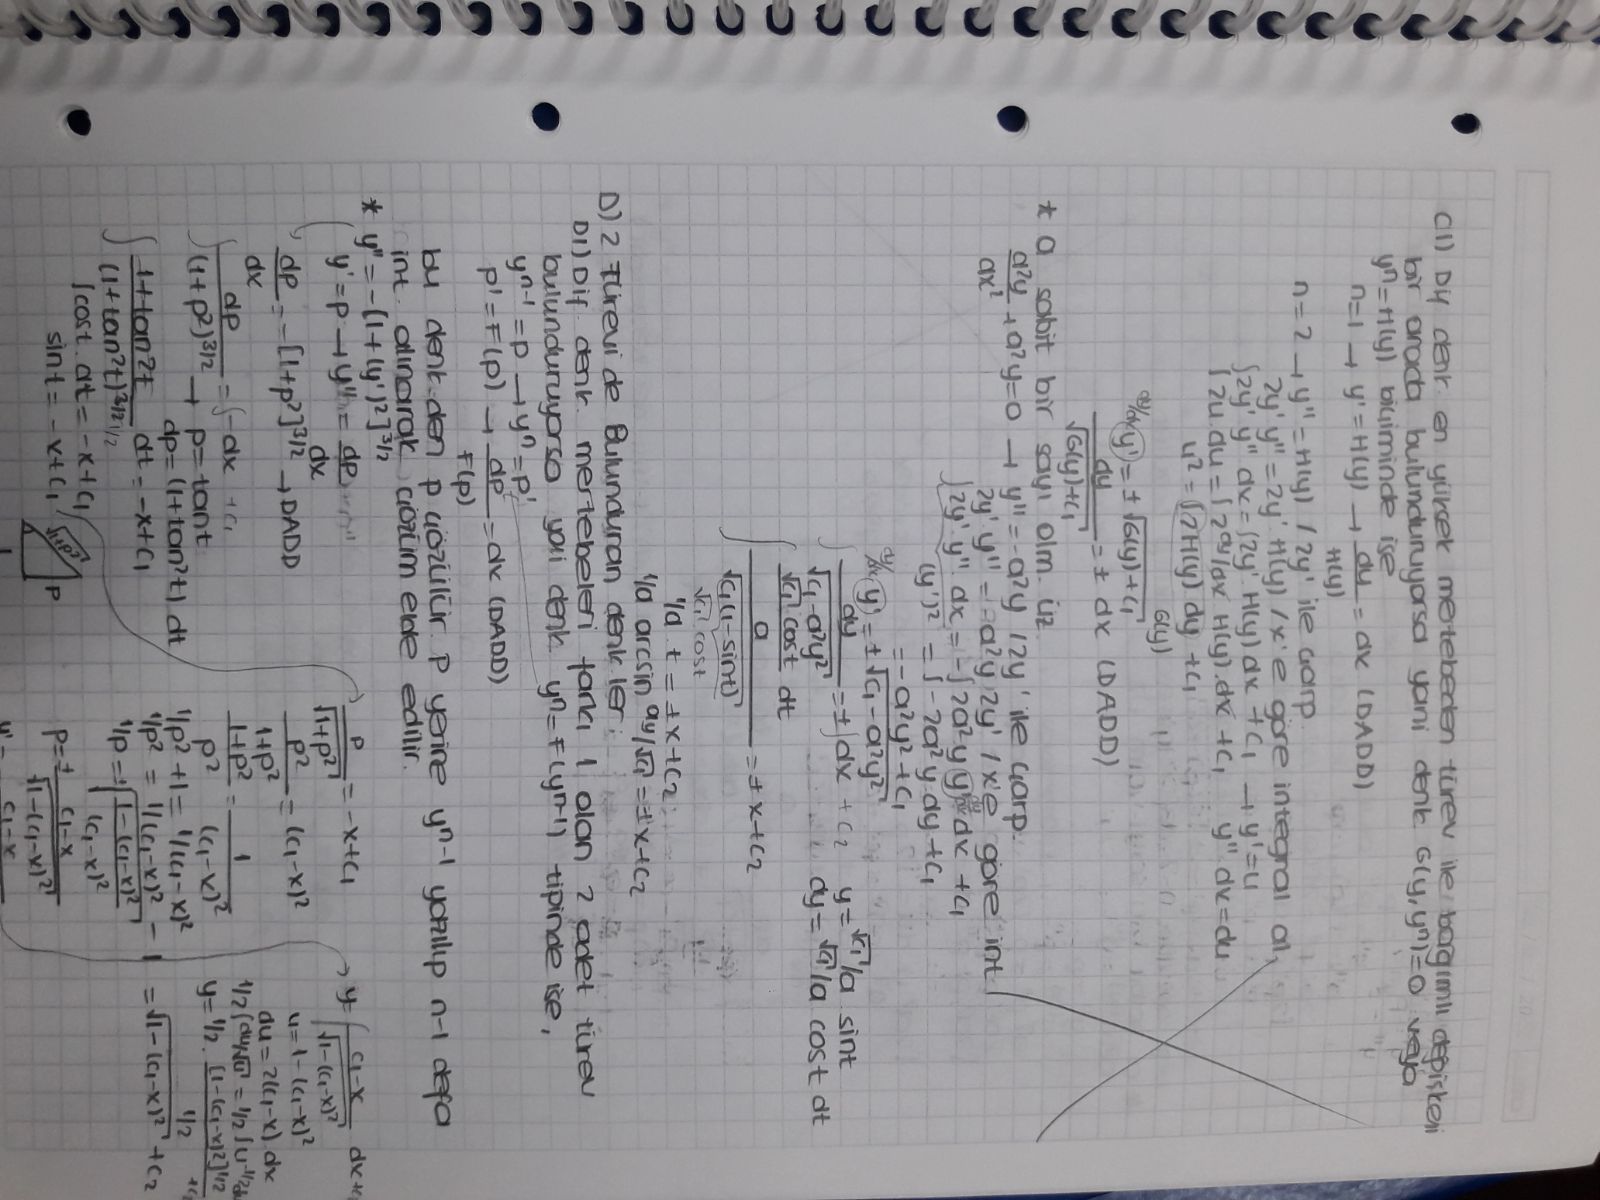 C1) Dif denk. en yüksek mertebeden türev ile bağımlı değişkeni
bir arada bulunduruyorsa yani denk G(y, yⁿ)=0 veya
yⁿ=H(y) biçiminde ise
n=1 → y'=H(y) → dy/H(y) = dx (DADD)
n=2 → y''=H(y) / 2y' ile çarp.
2y' y''=2y' H(y) / x'e göre integral al,
∫2y' y'' dx=∫2y' H(y) dx +c₁ → y'=u
∫2u du=∫2 dy/dx H(y).dx +c₁ y'' dx=du
u²=∫2H(y) dy +c₁
G(y)
dy/dx y' = ±√G(y)+c₁
dy/√G(y)+c₁ = ± dx (DADD)
* a sabit bir sayı olm. üz.
d²y/dx² +a²y=0 → y''=-a²y / 2y' ile çarp.
2y' y''=-a²y 2y' / x'e göre int
∫2y' y'' dx=-∫2a²y y' dy/dx dx +c₁
(y')² = ∫-2a²y dy+c₁
=-a²y²+c₁
dy/dx y' = ±√c₁-a²y²
∫ dy/√c₁-a²y² = ±∫dx +c₂ y=√c₁/a sint
dy=√c₁/a cost dt
∫ √c₁ cost/a dt / √c₁(1-sint) = ±x+c₂
√c₁ cost
1/a t = ±x+c₂
1/a arcsin ay/√c₁ = ±x+c₂
D) 2 Türevi de Bulunduran denkler:
D1) Dif denk. mertebeleri farkı 1 olan 2 adet türev
bulunduruyorsa yani denk yⁿ=F(yⁿ⁻¹) tipinde ise,
yⁿ⁻¹=p → yⁿ=p'
p'=F(p) → dp/F(p) = dx (DADD)
bu denk.den p çözülür. p yerine yⁿ⁻¹ yazılıp n-1 defa
int. alınarak çözüm elde edilir.
* y''=-[1+(y')²]^3/2
y'=p → y''= dp/dx
dp/dx = -[1+p²]^3/2 → DADD
∫ dp/(1+p²)^3/2 = ∫-dx +c₁
→ p=tant
dp=(1+tan²t) dt
∫ 1+tan²t/(1+tan²t)^3/2 1/2 dt=-x+c₁
∫cost. dt=-x+c₁
sint=-x+c₁
√1+p² p
1
p/√1+p² = -x+c₁
p²/1+p² = (c₁-x)²
1+p²/p² = 1/(c₁-x)²
1/p² +1= 1/(c₁-x)²
1/p² = 1/(c₁-x)² - 1
1/p=±√1-(c₁-x)²/(c₁-x)²
p=± c₁-x/√1-(c₁-x)²
y'= c₁-x
y=∫ c₁-x/√1-(c₁-x)² dx+c
u=1-(c₁-x)²
du=2(c₁-x).dx
1/2∫du/√u = 1/2∫u^-1/2 du
y=1/2. [1-(c₁-x)²]^1/2 / 1/2 +c
=√1-(c₁-x)² +c₂